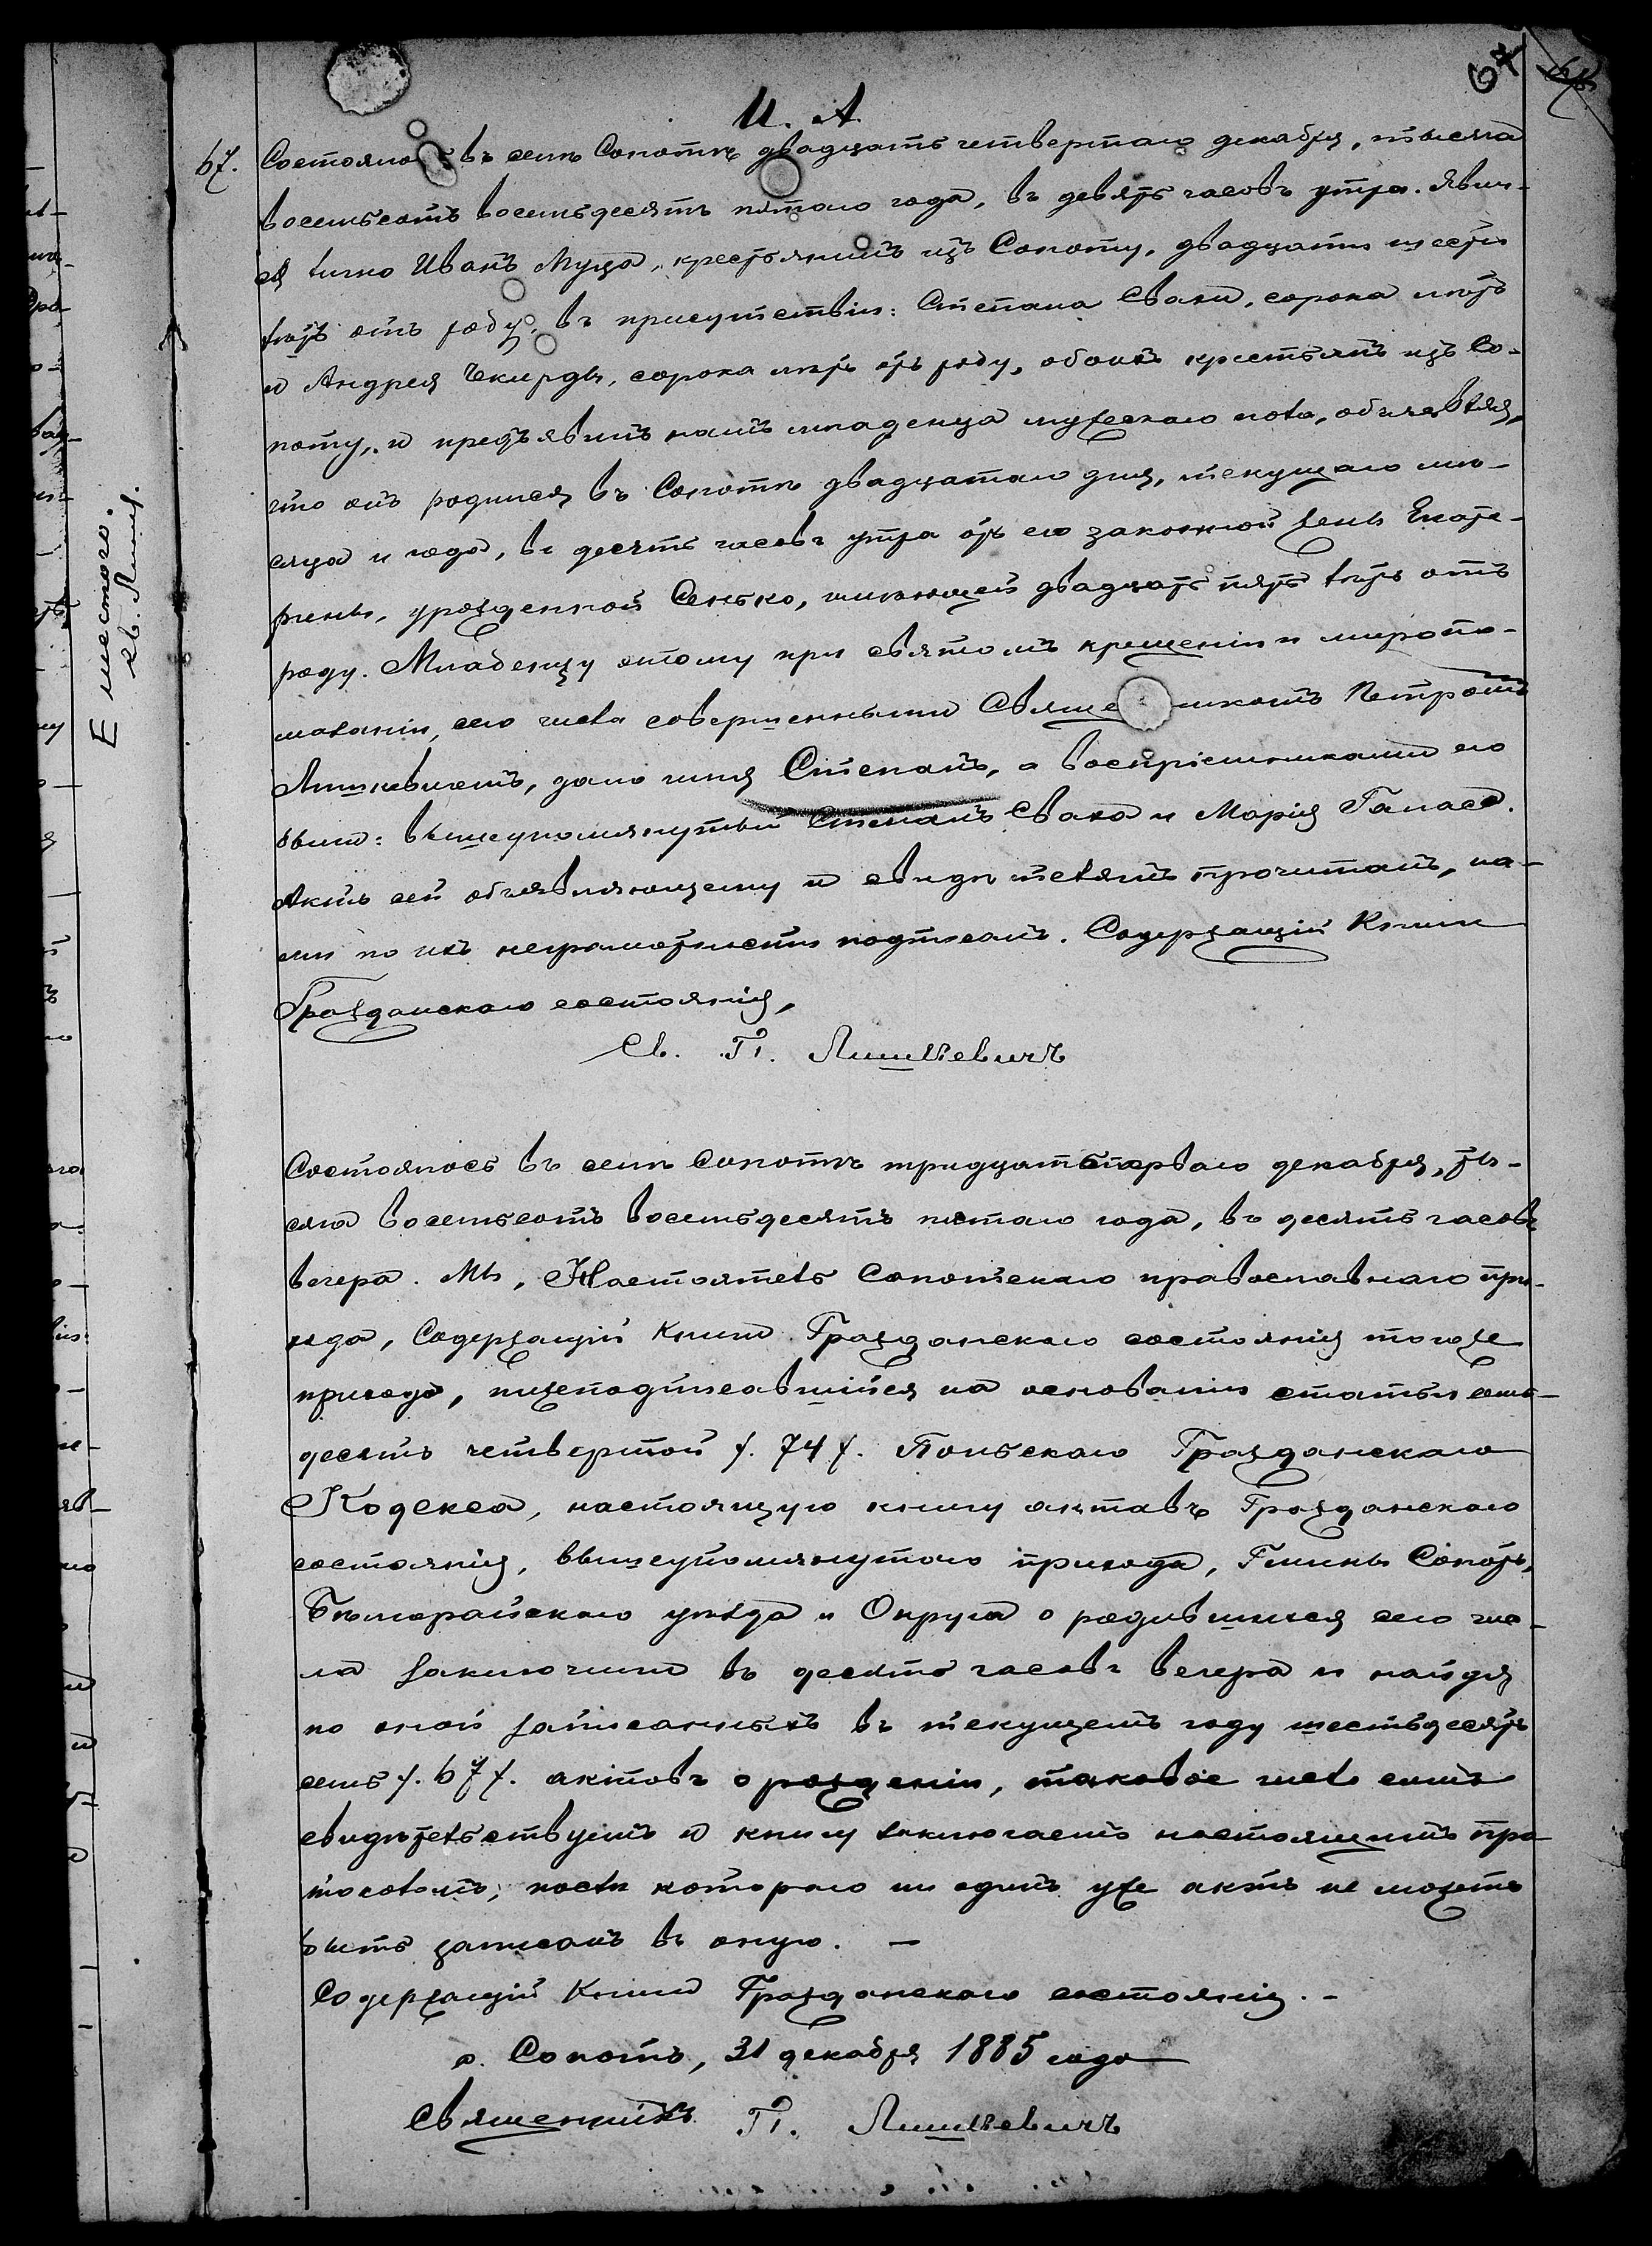 67
И. А.
67. Состоялось въ селѣ Сопотѣ двадцать четвертаго декабря, тысяча
восемьсотъ восемьдесятъ пятаго года, въ девять часовъ утра. Явил-
ся лично Иванъ Муца, крестьянинъ изъ Сопоту, двадцати шести
лѣтъ отъ роду, въ присутствіи: Степана Свака, сорока лѣтъ
и Андрея Чкирды, сорока лѣтъ отъ роду, обоихъ крестьянъ изъ Со-
поту, и предъявилъ намъ младенца мужескаго пола, объявляя,
что онъ родился въ Сопотѣ двадцатаго дня, текущаго мѣ-
сяца и года, въ десять часовъ утра отъ его законной жены Екате-
рины, урожденной Сенько, имѣющей двадцать пять лѣтъ отъ
роду. Младенцу этому при святомъ крещеніи и миропо-
мазаніи, сего числа совершенными Священникомъ Петромъ
Лишкевичемъ, дано имя Степанъ, а воспріемниками его
были: вышеупомянутый Степанъ Свака и Марія Галась.
Актъ сей объявляющему и свидѣтелямъ прочитанъ, на-
ми по ихъ неграмотности подписанъ. Содержащій Книги
Гражданскаго состоянія,
Св. П. Лишкевичъ
Состоялось въ селѣ Сопотѣ тридцать перваго декабря, ты-
сяча восемьсотъ восемьдесятъ пятаго года, въ десять часовъ
вечера. Мы, Настоятель Сопотскаго православнаго при-
хода, Содержащій Книги Гражданскаго состоянія тогоже
прихода, нижеподписавшійся на основаніи статьи семь-
десятъ четвертой /. 74 /. Польскаго Гражданскаго
Кодекса, настоящую книгу актавъ Гражданскаго
состоянія, вышеупомянутаго прихода, Гмины Сопотъ,
Бѣлгорайскаго уѣзда и Округа о родившихся сего чис-
ла заключили въ десять часовъ вечера и найдя
по оной записанныхъ въ текущемъ году шестьдесятъ
семь /. 67 /. актовъ о рожденіи, таковое число симъ
свидѣтельствуетъ и книгу заключаетъ настоящимъ про-
токоломъ, послѣ котораго ни одинъ уже актъ не можетъ
быть записанъ въ оную. —
Содержащій Книги Гражданскаго состоянія. -
с. Сопотъ, 31 декабря 1885 года
Священникъ П. Лишкевичъ
Е шестого.
св. Лишк.